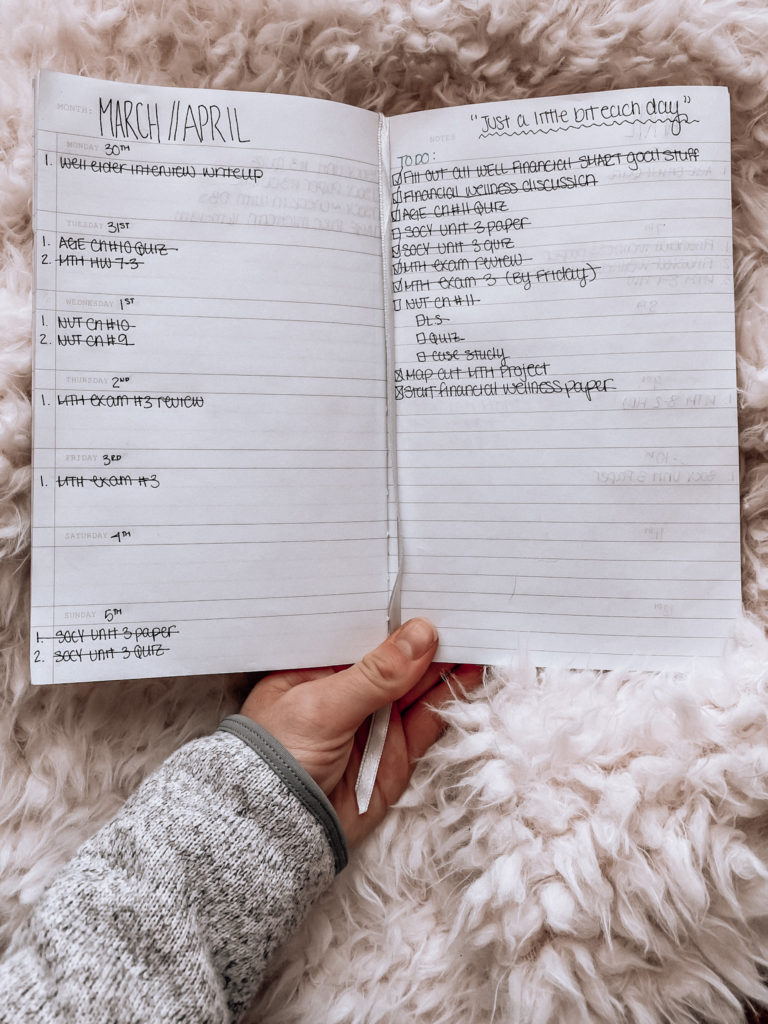 MONTH: MARCH // APRIL
MONDAY 30TH
1. Well elder interview writeup
TUESDAY 31ST
1. AGE CH#10 QUIZ
2. MTH HW 7-3
WEDNESDAY 1ST
1. NUT CH #10
2. NUT CH #9
THURSDAY 2ND
1. MTH exam #3 review
FRIDAY 3RD
1. MTH exam #3
SATURDAY 4TH
SUNDAY 5TH
1. SOCY UNIT 3 paper
2. SOCY UNIT 3 QUIZ
NOTES
"Just a little bit each day"
TO DO:
Fill out all WELL Financial SMART goal stuff
Financial wellness discussion
AGE CH#11 QUIZ
SOCY UNIT 3 paper
SOCY UNIT 3 quiz
MTH exam review
MTH exam 3 (By Friday)
NUT CH #11
LS
QUIZ
case study
Map out MTH Project
Start financial wellness paper